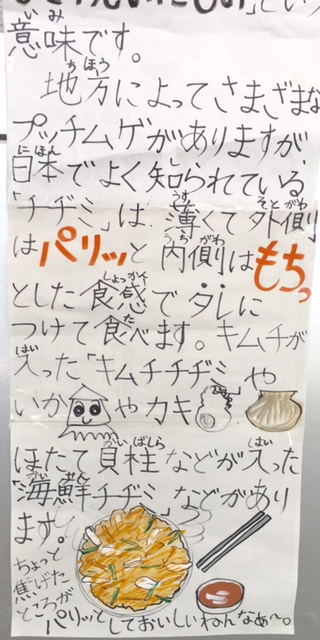 意味です。
地方によってさまざまな
プッチムゲがありますが、
日本でよく知られている
「チヂミ」は、薄くて外側
はパリッと内側はもちっ
とした食感でタレに
つけて食べます。キムチが
入った「キムチチヂミ」や
いかやカキ
ほたて貝柱などが入った
「海鮮チヂミ」などがあり
ます。
ちょっと
焦げた
ところが
パリッとしておいしいねんなぁ〜。